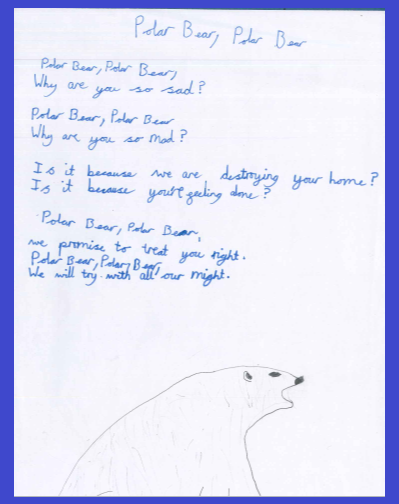 Polar Bear, Polar Bear
Polar Bear, Polar Bear,
Why are you so sad?
Polar Bear, Polar Bear
Why are you so mad?
Is it because we are destroying your home?
Is it because you're feeling done?
Polar Bear, Polar Bear,
we promise to treat you right.
Polar Bear, Polar Bear,
We will try with all our might.